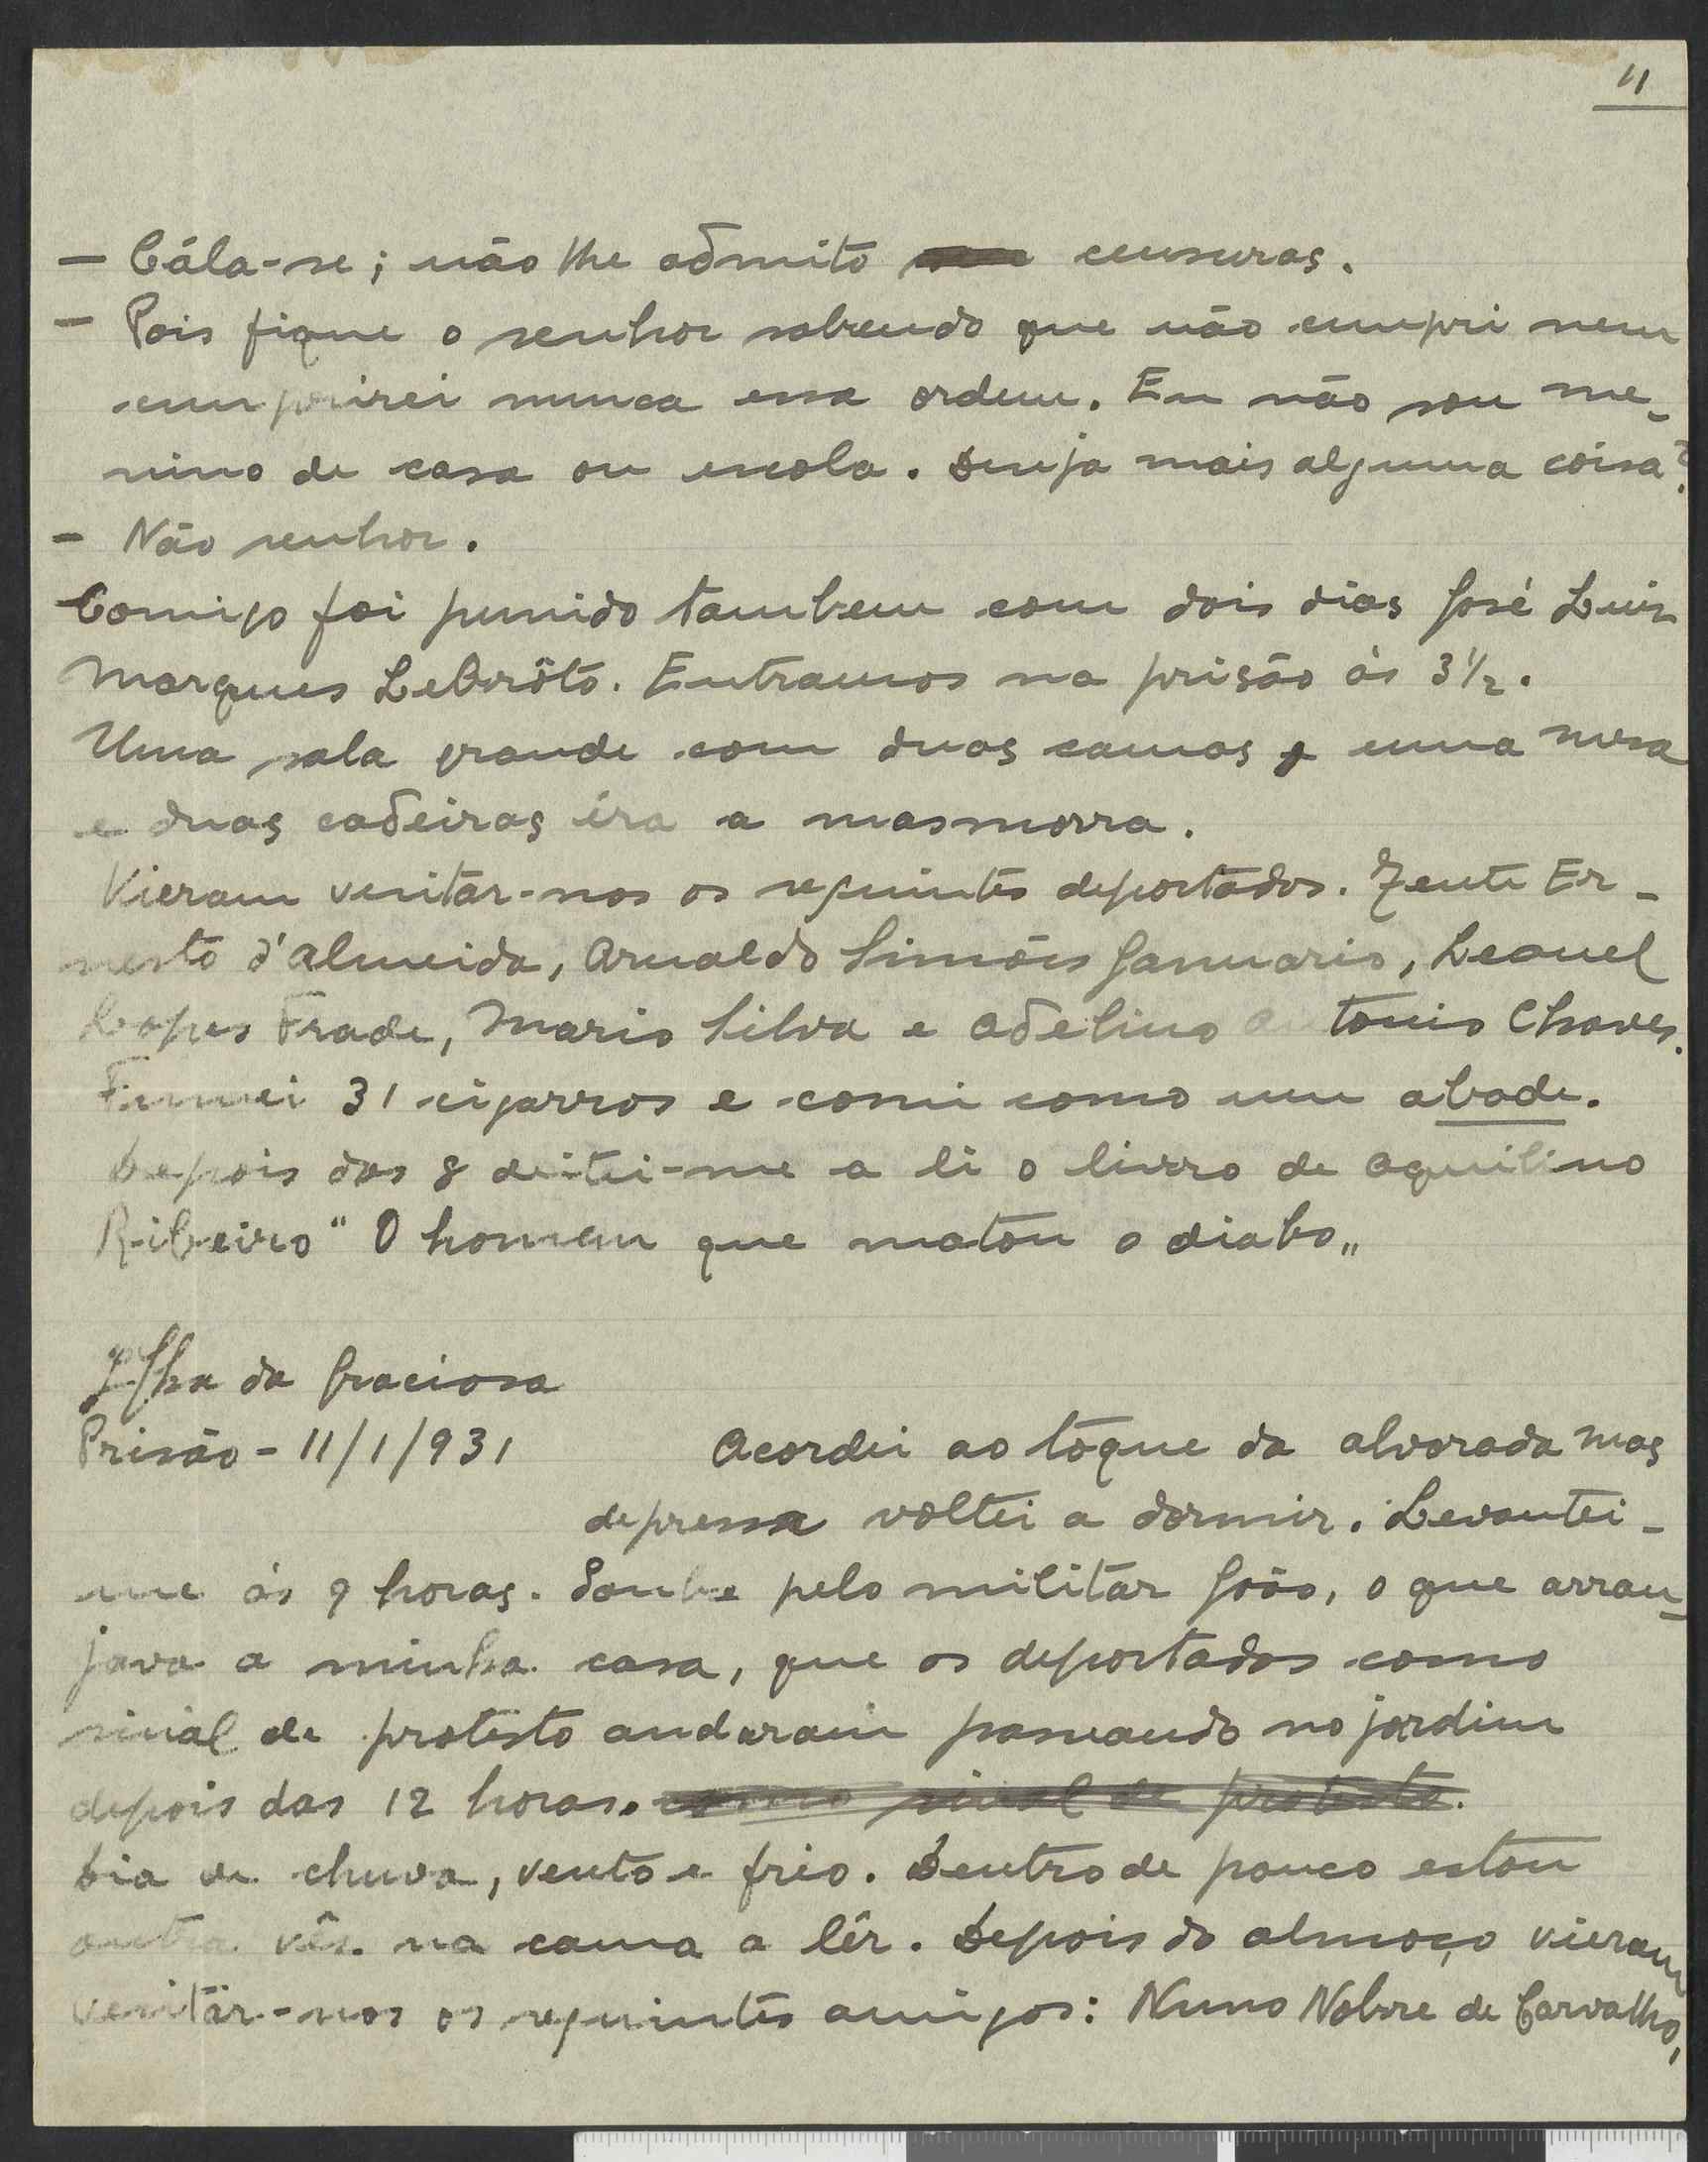 11
— Cála-se; não lhe admito censuras.
— Pois fique o senhor sabendo que não cumpri nem
cumprirei nunca essa ordem. Eu não sou me-
nino de casa ou escola. Deseja mais alguma coisa?
— Não senhor.
Comigo foi punido tambem com dois dias José Luis
Marques Lebrôto. Entramos na prisão ás 3 1/2.
Uma sala grande com duas camas, uma mesa
e duas cadeiras éra a masmorra.
Vieram vesitár-nos os seguintes deportados. Tente Er-
nesto d'Almeida, Arnaldo Simões Januario, Leonel
Lopes Frade, Mario Silva e Adelino Antonio Chaves.
Fumei 31 cigarros e comi como um abade.
Depois das 8 deitei-me a li o livro de Aquilino
Ribeiro "O homem que matou o diabo„
Ilha da Graciosa
Prisão - 11/1/931 Acordei ao tóque da alvorada mas
depressa voltei a dormir. Levantei-
me ás 9 horas. Soube pelo militar João, o que arran-
java a minha casa, que os deportados como
sinal de protesto andaram passeando no jardim
depois das 12 horas. como sinal de protesto.
Dia de chuva, vento e frio. Dentro de pouco estou
outra vês na cama a lêr. Depois do almoço vieram
vesitár-nos os seguintes amigos: Nuno Nobre de Carvalho,